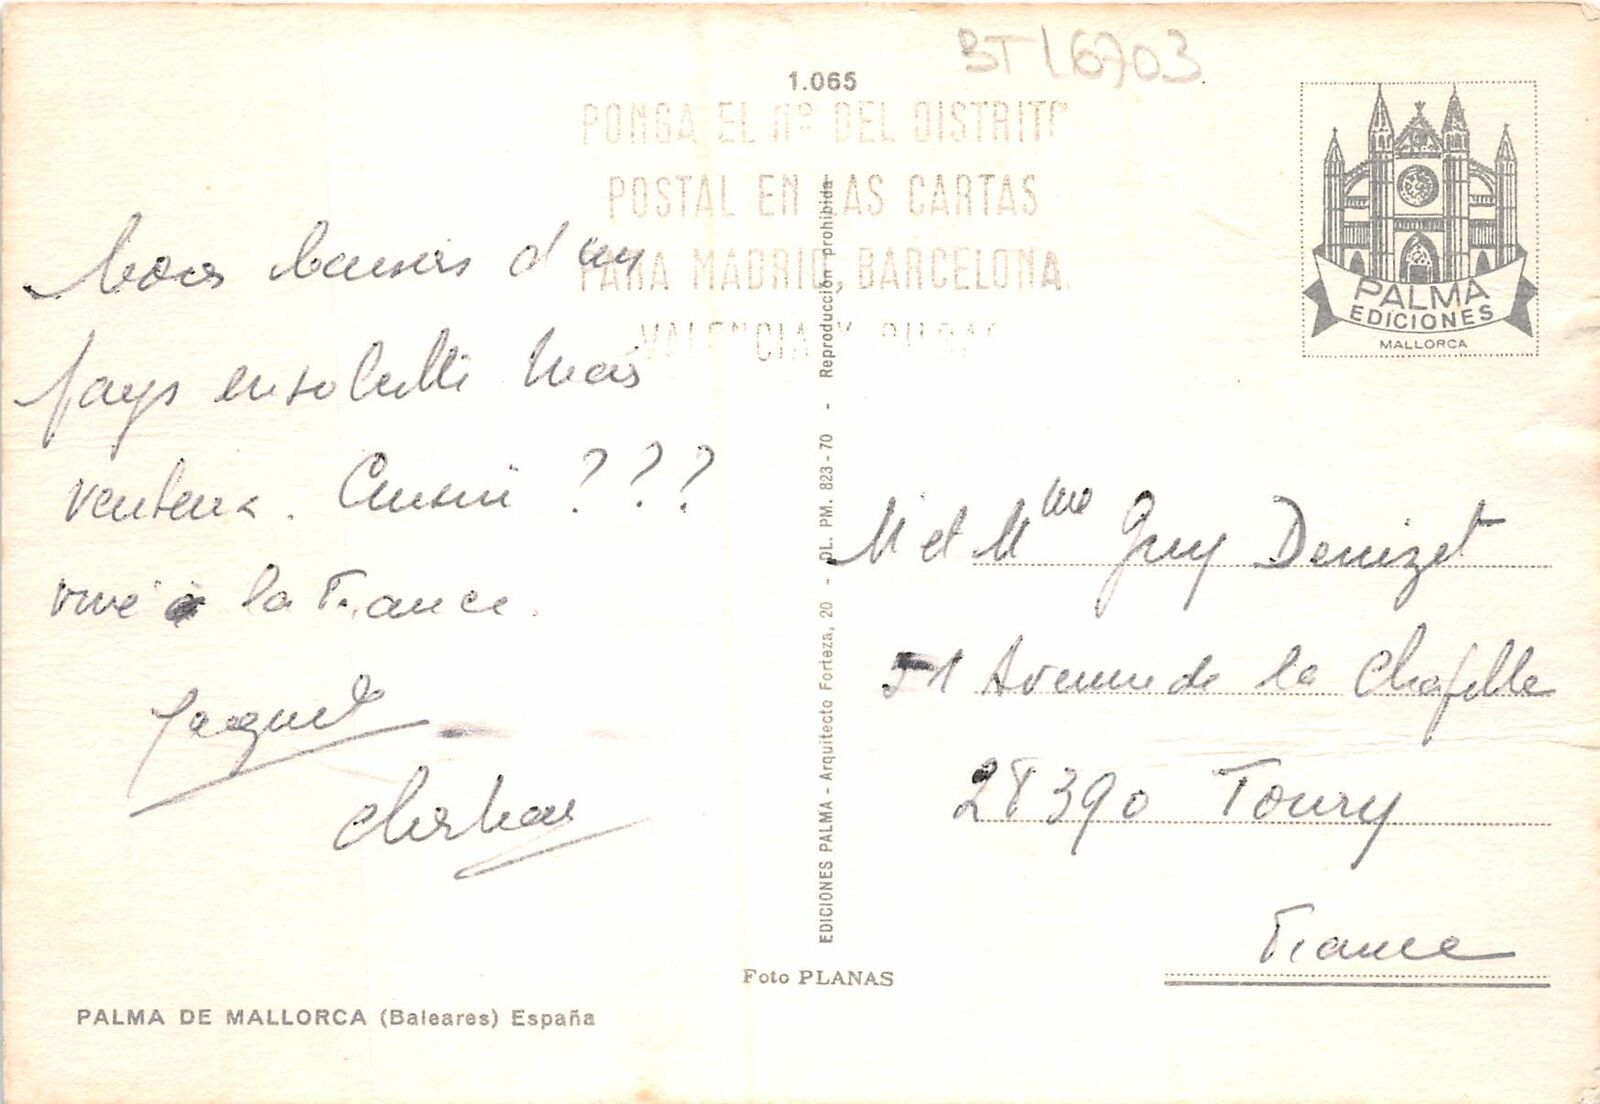 BT 16703
1.065
PONGA EL Nº DEL DISTRITO
POSTAL EN LAS CARTAS
PARA MADRID, BARCELONA,
VALENCIA Y
PALMA
EDICIONES
MALLORCA
d'un
pays ensoleillé Mais
venteux. Cuisine ? ? ?
vive la France.
M et Mme Guy Denizet
51 Avenue de la Chapelle
28390 Toury
France
EDICIONES PALMA - Arquitecto Forteza, 20 - DL. PM. 823-70 - Reproducción prohibida
Foto PLANAS
PALMA DE MALLORCA (Baleares) España